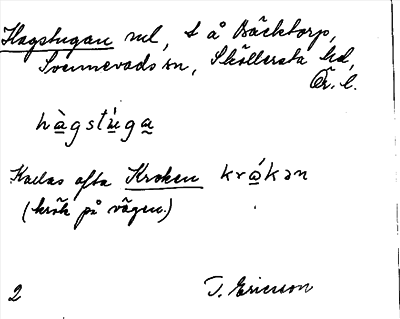 Hagstugan rul, t å Bäcktorp,
Svennevads sn, Sköllersta hd,
Ör. l.
hàgstùga
Kallas ofta Kroken krókən
(krök på vägen.)
2 T. Ericsson